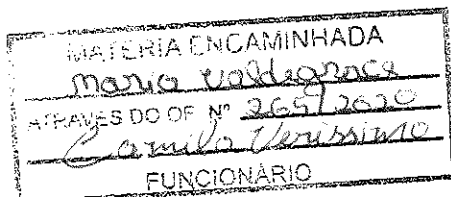 MATERIA ENCAMINHADA
Maria Valdegrace
ATRAVES DO OF Nº 269/2020
Camila Verissimo
FUNCIONÁRIO